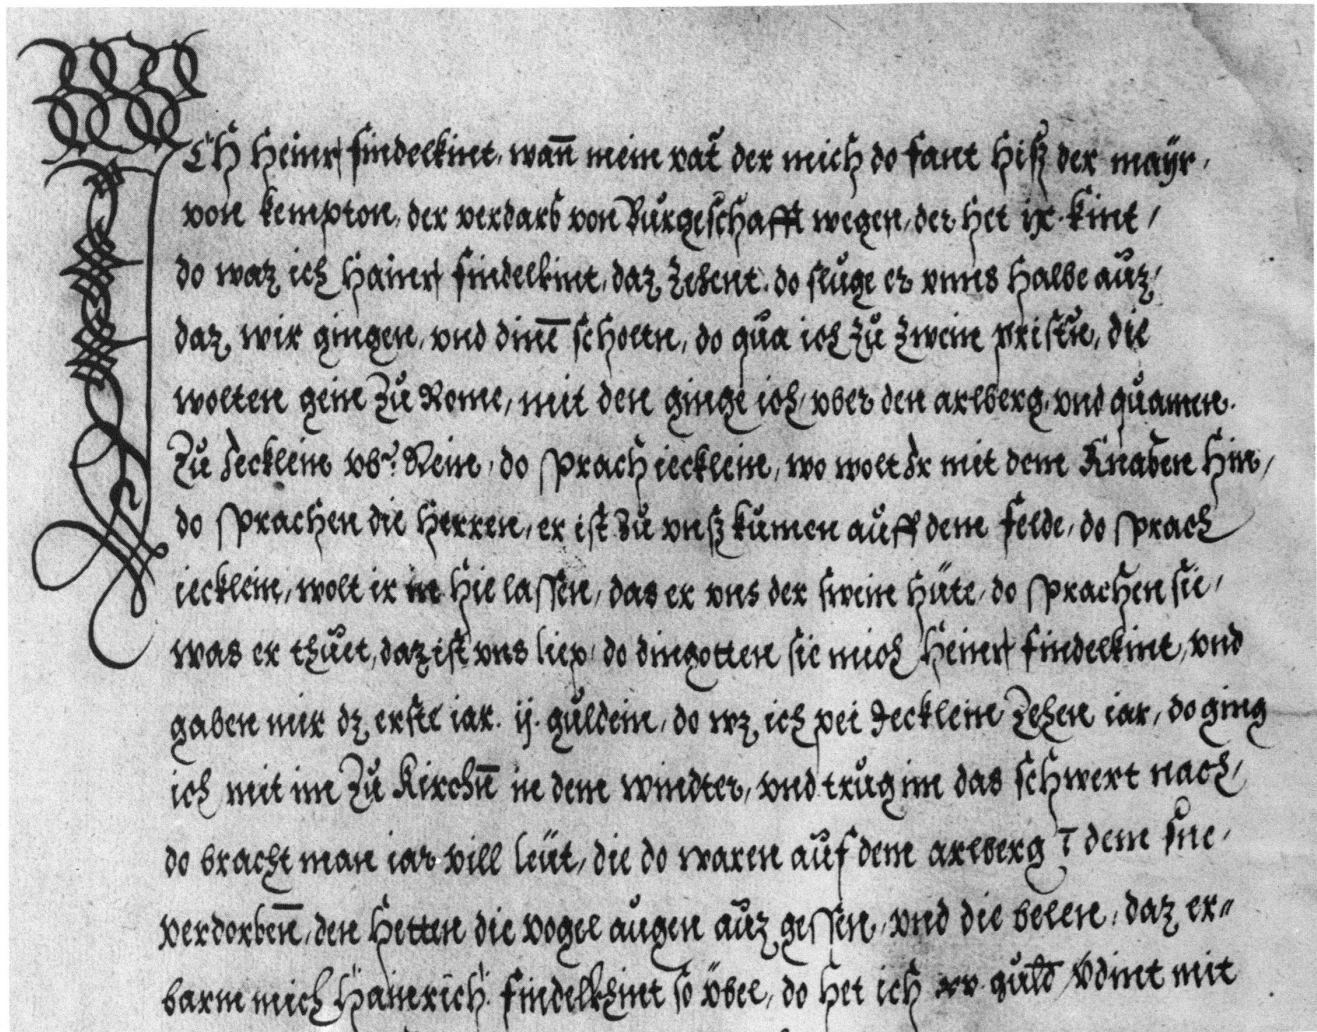 ICH Heinrich findelkint, wan̄ mein vat̄ der mich do fant hiß der mayr,
von kempton, der verdarb von Burgeschafft wegen, der het ix. kint,
do waz ich Hainrich findelkint, daz zehent. do sluge er vnns halbe auz,
daz, wir gingen, vnd dine̅ scholtn, do qua ich zu zwein pristn̄, die
wolten gein zu Rome, mit den ginge ich, vber den arlberg, vnd quamen.
zu Jecklein vb. Rein, do sprach iecklein, wo wolt Ir mit dem Knaben hin,
do sprachen die herren, er ist zu vnß kumen auff dem felde, do sprach
iecklein, wolt ir in hie lassen, das er vns der swein hüte, do sprachen sie,
was er thuet, daz ist vns liep, do dingotten sie mich Heinrich findelkint, vnd
gaben mir dz, erste iar. ij. guldein, do wz, ich pei Jecklein zehen iar, do ging
ich mit im zu Kirchn̄ in dem windter, vnd trug im das schwert nach,
do bracht man iar vill leüt, die do waren auf dem arlberg ī dem sne,
verdorben̄, den hetten die vogel augen auz gessen, vnd die kelen, daz er=
barm mich Hainrich findelkhint so vbel, do het ich xv. guld vdint mit